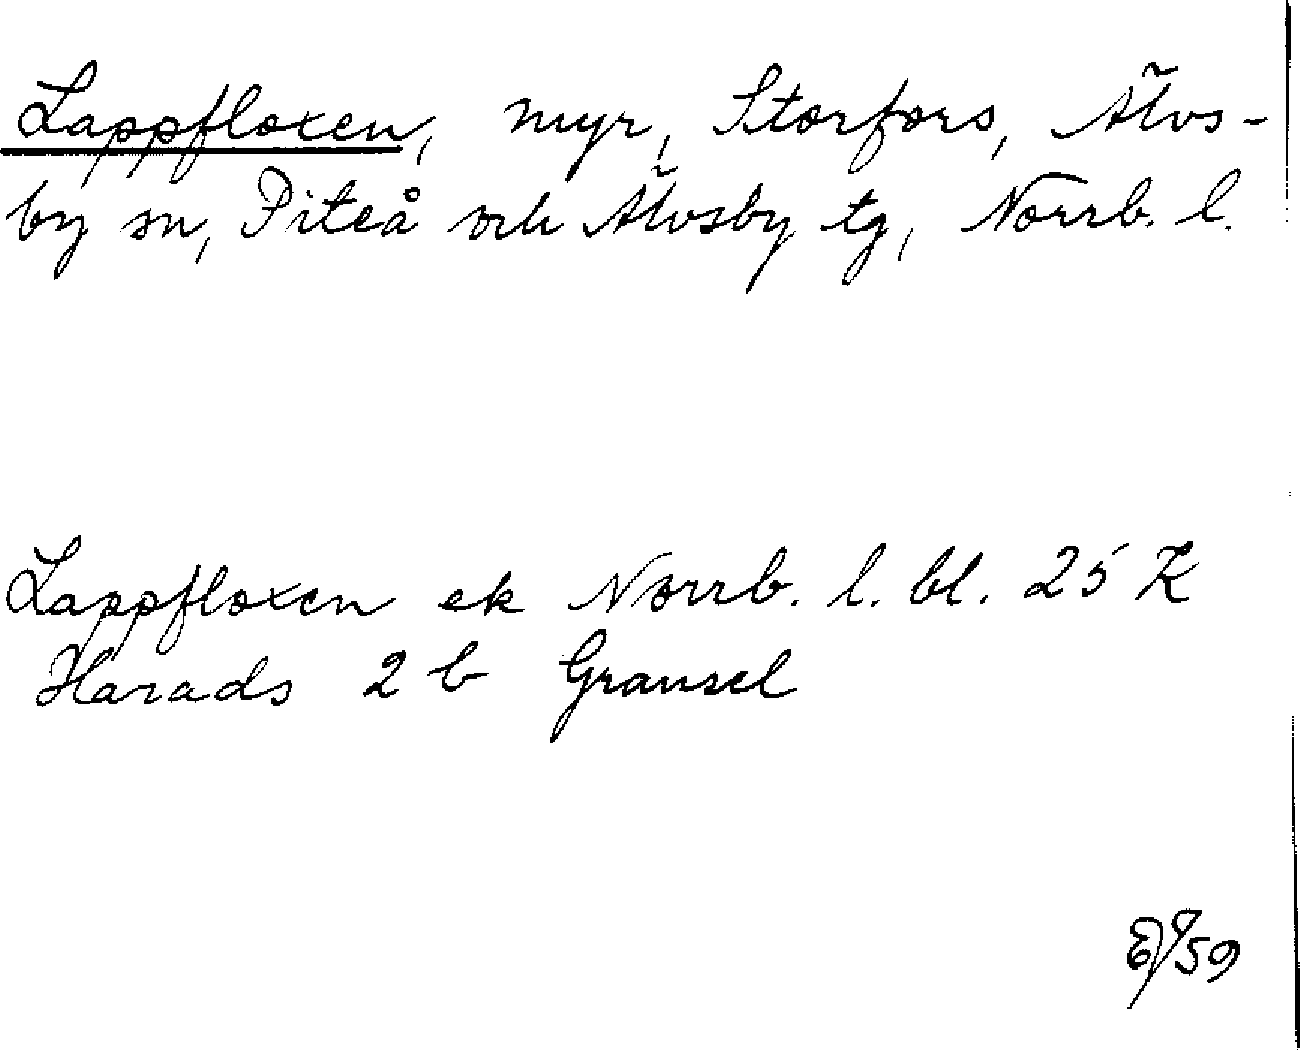 Lappfloxen, myr, Storfors, Älvs-
by sn, Piteå och Älvsby tg, Norrb. l.
Lappfloxen ek Norrb. l. bl. 25 K
Harads 2 b Gransel